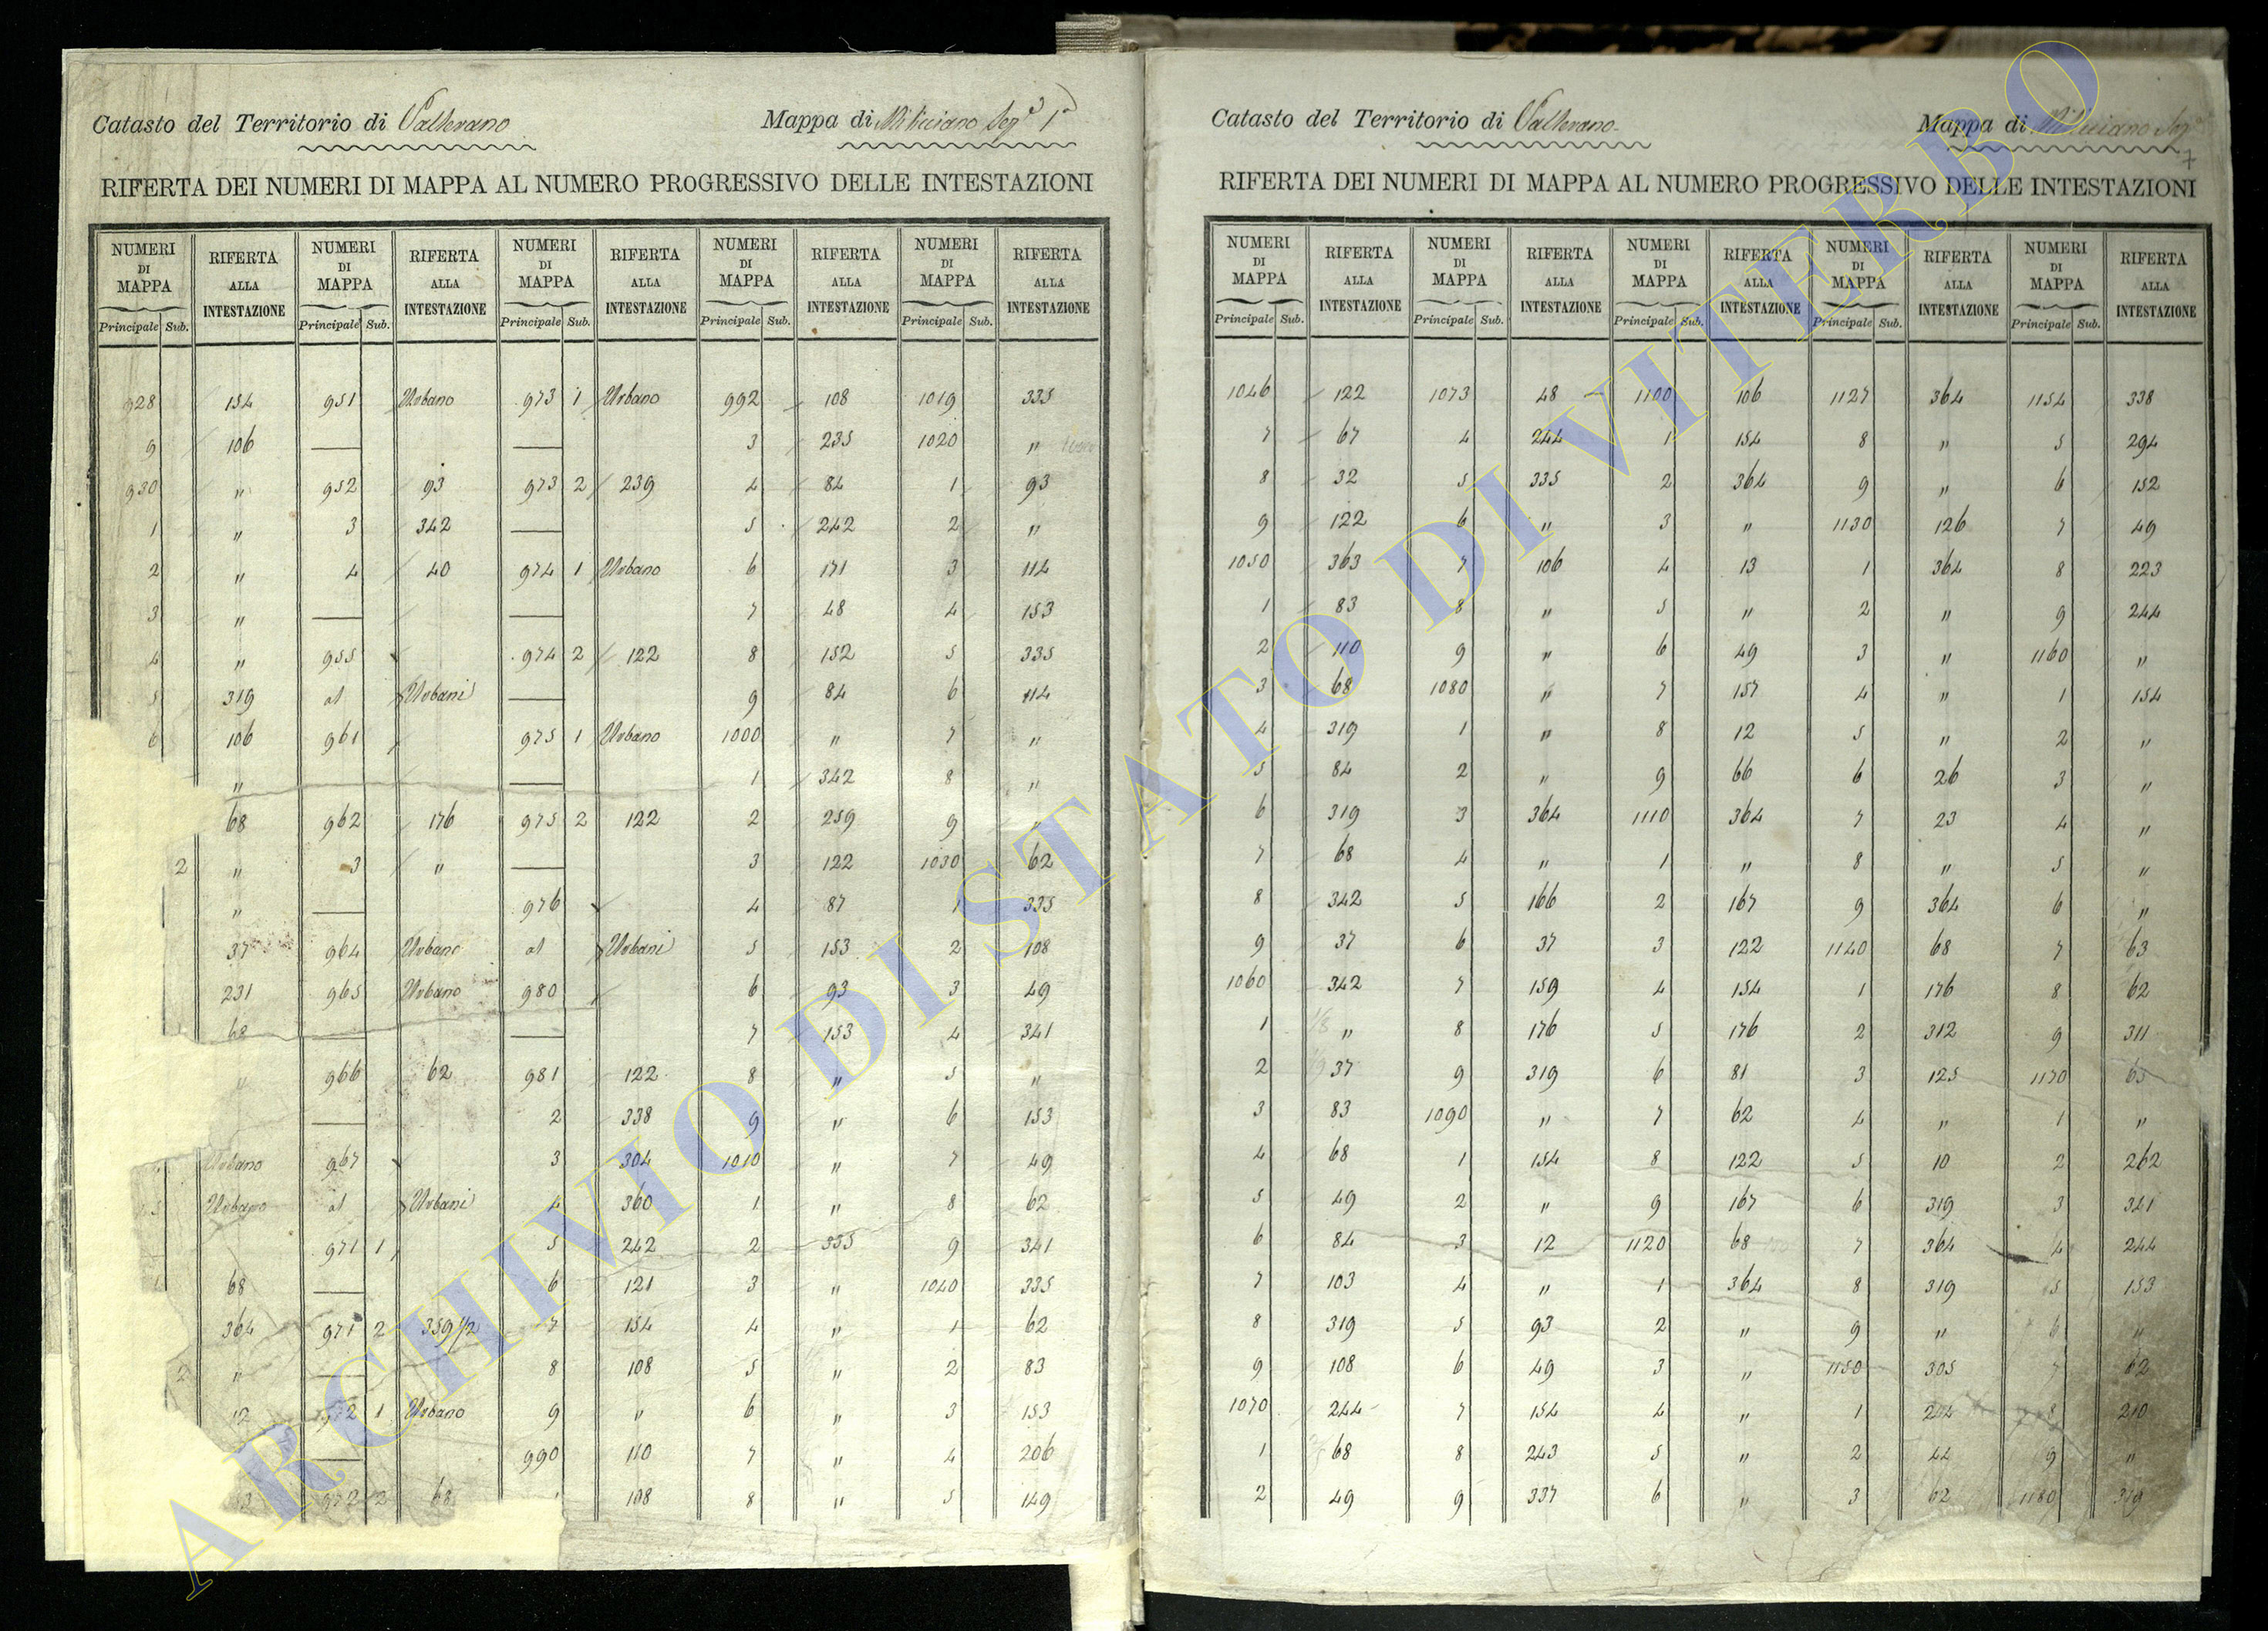 Catasto del Territorio di Vallerano Mappa di
RIFERTA DEI NUMERI DI MAPPA AL NUMERO PROGRESSIVO DELLE INTESTAZIONI
NUMERI DI MAPPA RIFERTA ALLA INTESTAZIONE NUMERI DI MAPPA RIFERTA ALLA INTESTAZIONE NUMERI DI MAPPA RIFERTA ALLA INTESTAZIONE NUMERI DI MAPPA RIFERTA ALLA INTESTAZIONE NUMERI DI MAPPA RIFERTA ALLA INTESTAZIONE
Principale Sub. Principale Sub. Principale Sub. Principale Sub. Principale Sub.
928 154 951 Urbano 973 1 Urbano 992 108 1019 335
9 106 — — 3 235 1020 "
930 " 952 93 973 2 239 4 84 1 93
1 " 3 342 — 5 242 2 "
2 " 4 40 974 1 Urbano 6 171 3 114
3 " — — 7 48 4 153
4 " 955 974 2 122 8 152 5 335
5 319 al Urbani — 9 84 6 114
6 106 961 975 1 Urbano 1000 " 7 "
" — 1 342 8 "
68 962 176 975 2 122 2 259 9 "
2 " 3 " — 3 122 1030 62
" — 976 4 87 1 335
37 964 Urbano al Urbani 5 153 2 108
231 965 Urbano 980 6 93 3 49
68 — — 7 153 4 341
" 966 62 981 122 8 " 5 "
— 2 338 9 " 6 153
Urbano 967 3 304 1010 " 7 49
Urbano al Urbani 4 360 1 " 8 62
971 1 5 242 2 335 9 341
68 — 6 121 3 " 1040 335
364 971 2 359 1/2 7 154 4 " 1 62
2 " — 8 108 5 " 2 83
12 972 1 Urbano 9 " 6 " 3 153
— 990 110 7 " 4 206
972 2 68 108 8 " 5 149
Catasto del Territorio di Vallerano Mappa di
7
RIFERTA DEI NUMERI DI MAPPA AL NUMERO PROGRESSIVO DELLE INTESTAZIONI
NUMERI DI MAPPA RIFERTA ALLA INTESTAZIONE NUMERI DI MAPPA RIFERTA ALLA INTESTAZIONE NUMERI DI MAPPA RIFERTA ALLA INTESTAZIONE NUMERI DI MAPPA RIFERTA ALLA INTESTAZIONE NUMERI DI MAPPA RIFERTA ALLA INTESTAZIONE
Principale Sub. Principale Sub. Principale Sub. Principale Sub. Principale Sub.
1046 122 1073 48 1100 106 1127 364 1154 338
7 67 4 244 1 154 8 " 5 294
8 32 5 335 2 364 9 " 6 152
9 122 6 " 3 " 1130 126 7 49
1050 363 7 106 4 13 1 364 8 223
1 83 8 " 5 " 2 " 9 244
2 110 9 " 6 49 3 " 1160 "
3 68 1080 " 7 157 4 " 1 154
4 319 1 " 8 12 5 " 2 "
5 84 2 " 9 66 6 26 3 "
6 319 3 364 1110 364 7 23 4 "
7 68 4 " 1 " 8 " 5 "
8 342 5 166 2 167 9 364 6 "
9 37 6 37 3 122 1140 68 7 63
1060 342 7 159 4 154 1 176 8 62
1 " 8 176 5 176 2 312 9 311
2 37 9 319 6 81 3 125 1170 65
3 83 1090 " 7 62 4 " 1 "
4 68 1 154 8 122 5 10 2 262
5 49 2 " 9 167 6 319 3 341
6 84 3 12 1120 68 7 364 4 244
7 103 4 " 1 364 8 319 5 153
8 319 5 93 2 " 9 " 6 "
9 108 6 49 3 " 1150 305 7 62
1070 244 7 154 4 " 1 8 210
1 68 8 243 5 " 2 44 9 "
2 49 9 337 6 " 3 62 1180 319
ARCHIVIO DI STATO DI VITERBO